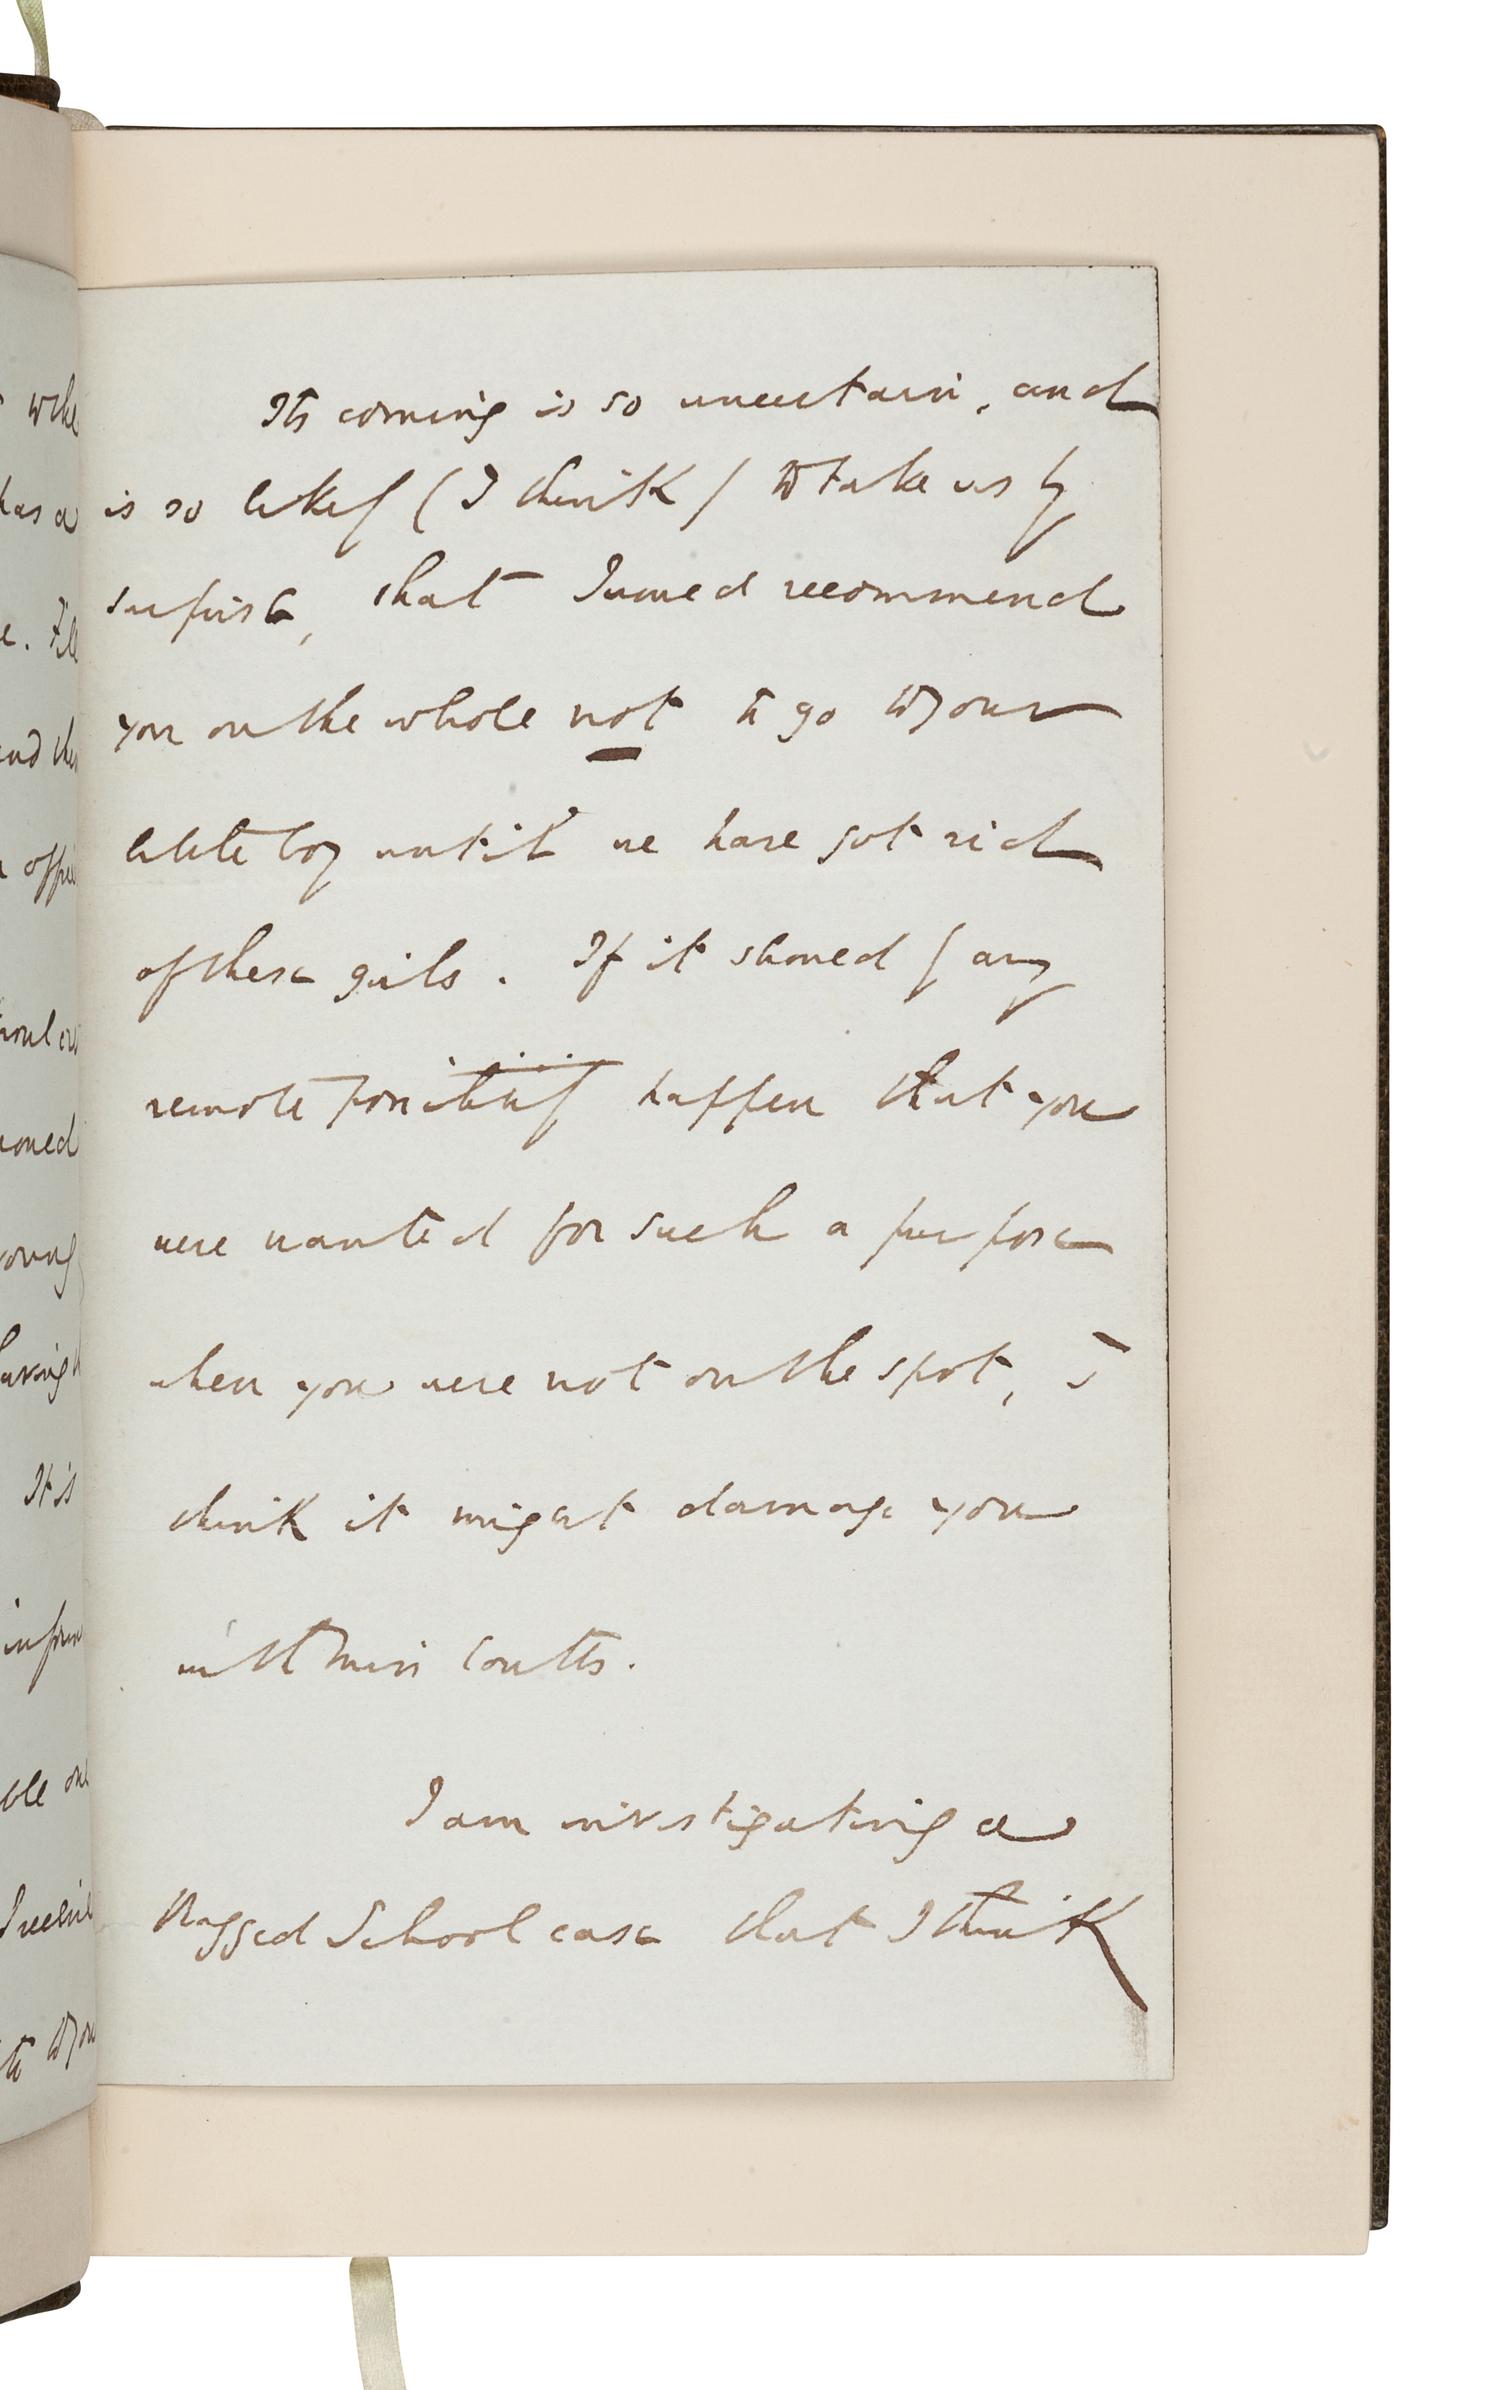 Its coming is so uncertain, and
is so likely (I think) to take us by
surprise, that I would recommend
you on the whole not to go to your
little boy until we have got rid
of these girls. If it should by any
remote possibility happen that you
were wanted for such a purpose
when you were not on the spot, I
think it might damage you
with Miss Coutts.
I am investigating a
Ragged School case that I think